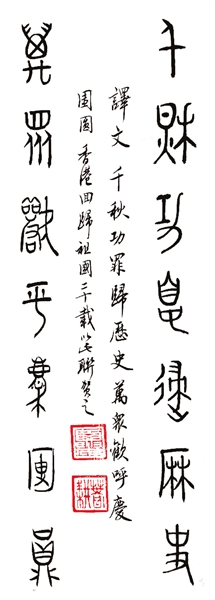 千秋功罪歸歷史
譯文 千秋功罪歸歷史 萬眾歡呼慶
團圓 香港回歸祖國二十載此聯賀之
萬眾歡乎慶團圓